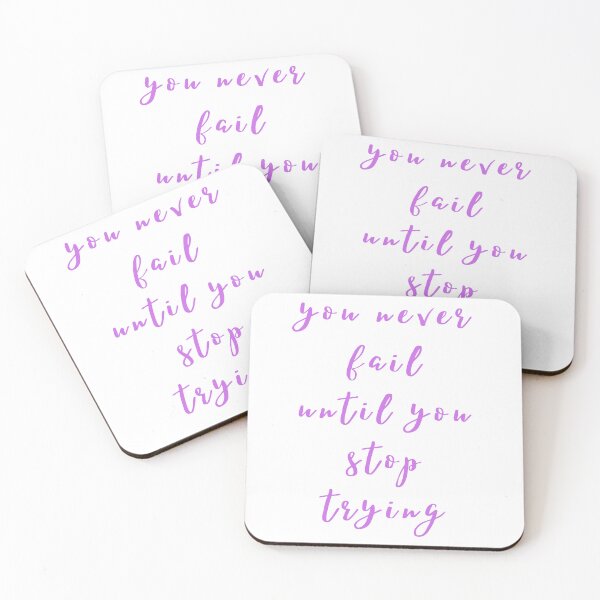 you never
fail
until you
you never
fail
until you
stop
you never
fail
until you
stop
you never
fail
until you
stop
trying